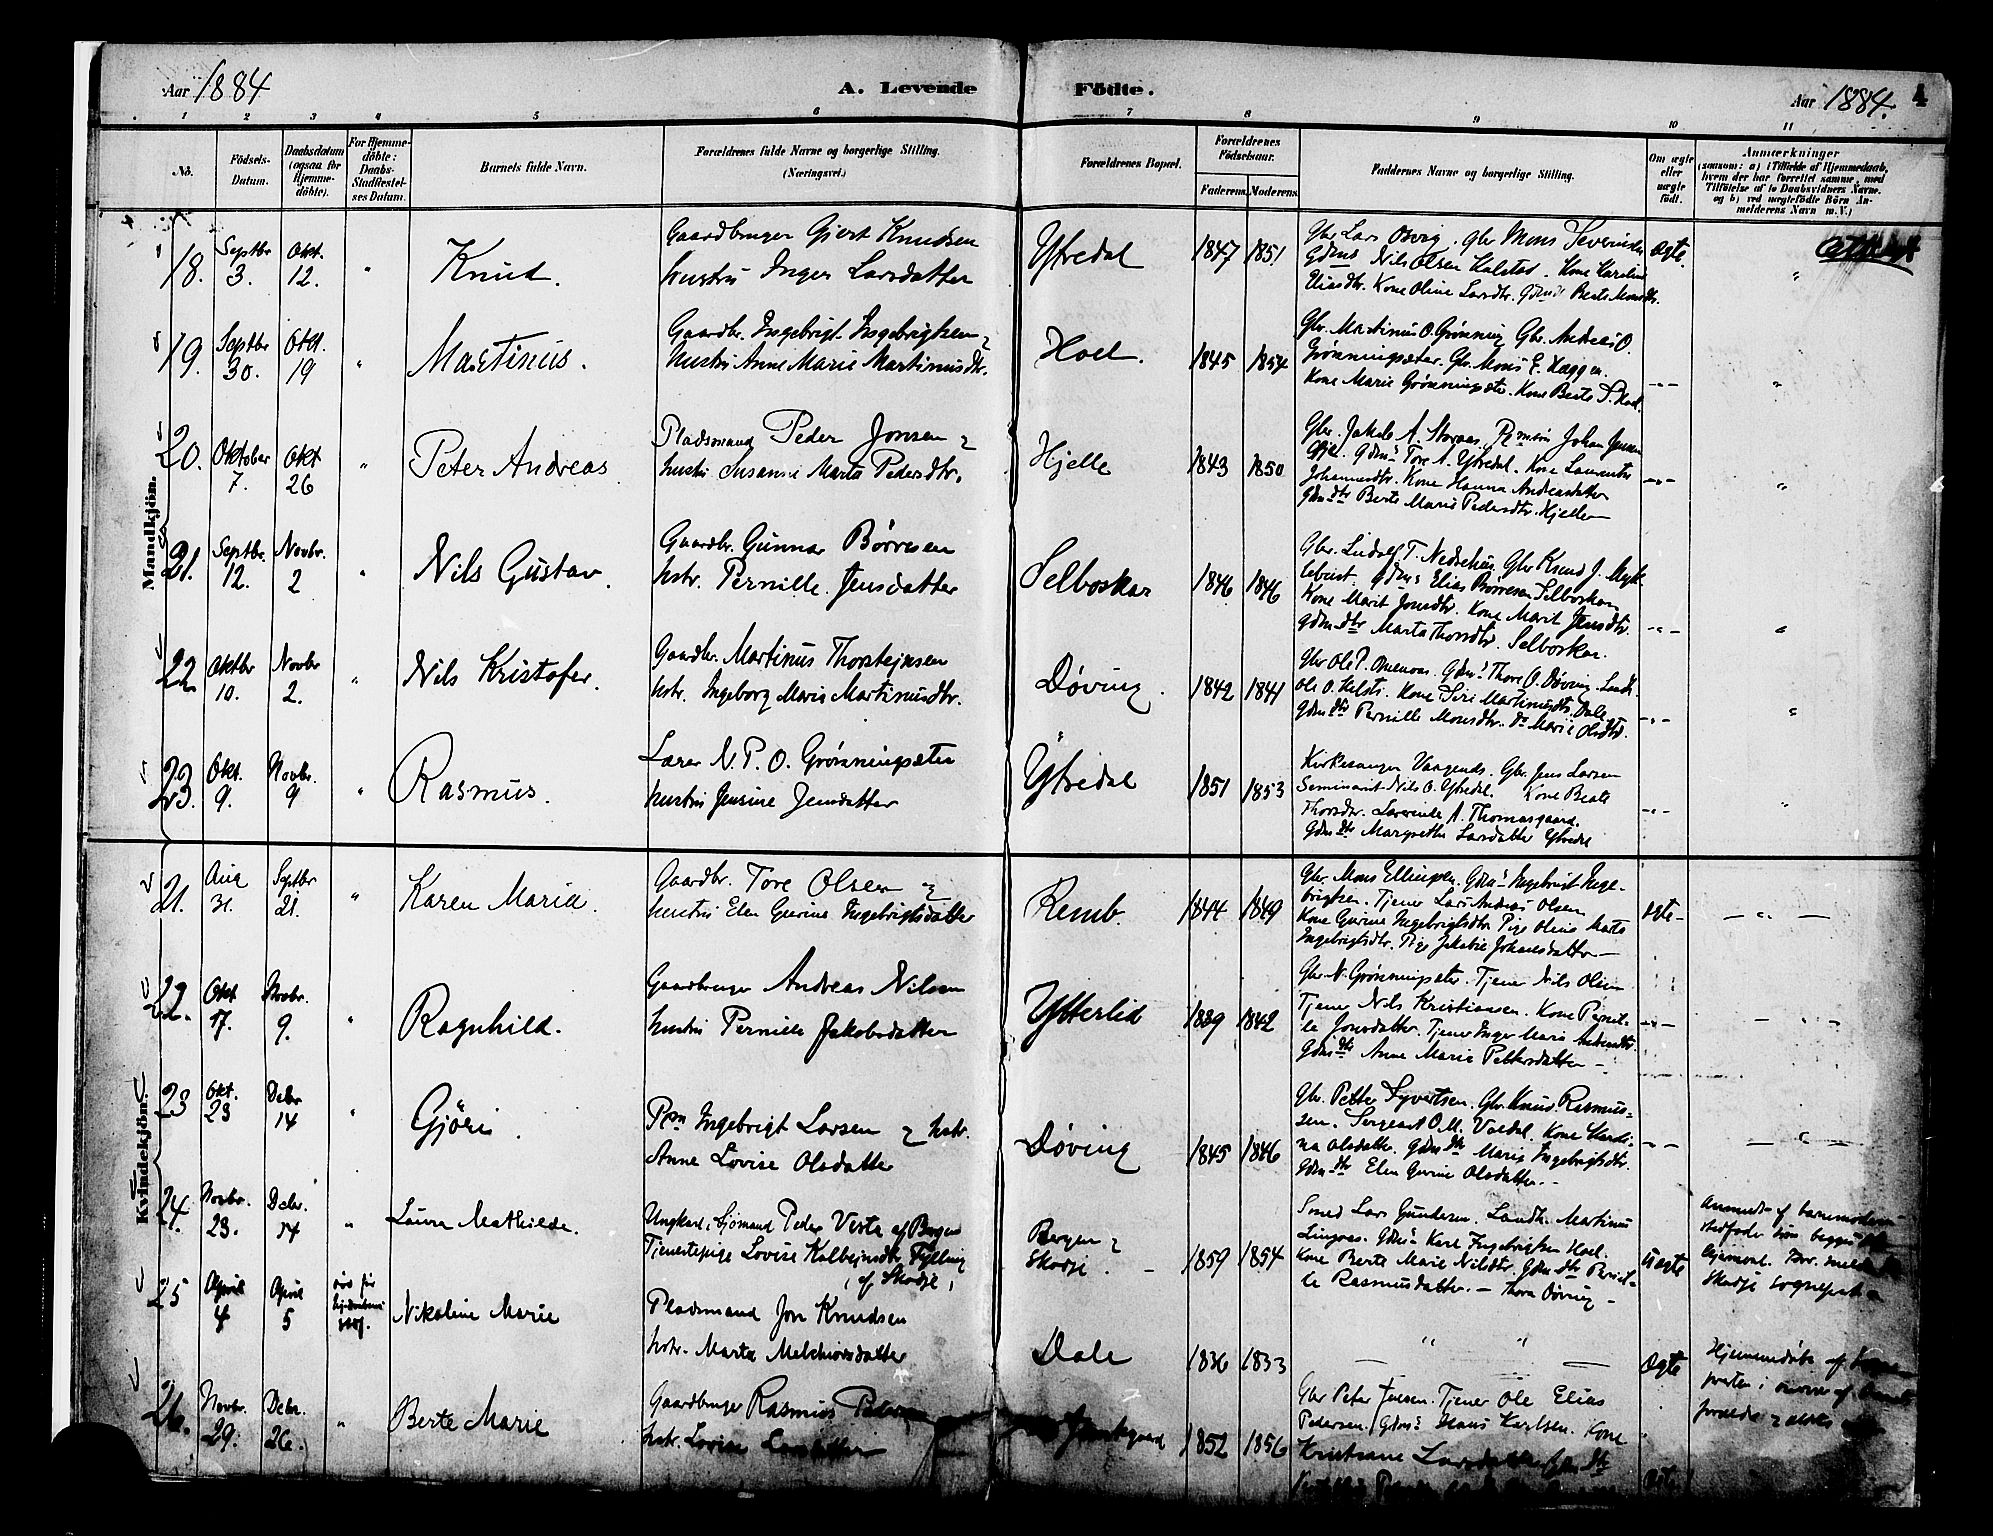 Aar 1884
A. Levende
Födte.
Aar 1884.
4
1 2 3 4 5 6 7 8 9 10 11
No.
Födsels-
Datum.
Daabsdatum
(ogsaa for
Hjemme-
döbte).
For Hjemme-
döbte:
Daabs-
Stadfæstel-
ses Datum.
Barnets fulde Navn.
Forældrenes fulde Navne og borgerlige Stilling.
(Næringsvei.)
Forældrenes Bopæl.
Forældrenes
Födselsaar.
Faderens. Moderens.
Faddernes Navne og borgerlige Stilling.
Om ægte
eller
uægte
födt.
Anmærkninger
(saasom: a) i Tilfælde af Hjemmedaab,
hvem der har forrettet samme, med
Tilföielse af to Daabsvidners Navne,
og b) ved uægtefödte Börn An-
melderens Navn m. V.)
Mandkjön.
18.
Septbr
3.
Okt.
12.
"
Knud.
Gaardbruger Gjert Knudsen
hustru Inger Larsdatter
Ytredal
1847 1851
Gbr Lars Osvig. Gbr Mons Severinsen
Gdms Nils Olsen Kalstad. Kone Karoline
Eliasdtr. Kone Oline Larsdtr. Gdms Berte Monsdtr.
Ægte.
"
19.
Septbr
30.
Okt.
19
"
Martinus.
Gaardbr. Ingebrigt Ingebrigtsen
hustru Anne Marie Martinusdtr.
Hoel.
1845 1854
Gbr. Martinus O. Grønning Gbr. Andreas O.
Grønningsæter. Gbr. Mons E.
Kone Marie Grønningsæter. Kone Berte
-"-
"
20.
Oktober
7.
Okt
26
"
Peter Andreas
Pladsmand Peder Jonsen
hustru Susanne Marta Pedersdtr.
Hjelle
1843 1850
Gbr. Jakob A. Johan Jensen
Gdms Tore A. Ytredal. Kone Laurentse
Johannesdtr. Kone Hanna Andreasdatter
Gdmsdtr Berte Marie Pedersdtr. Hjelle
-"-
"
21.
Septbr.
12.
Novbr.
2
"
Nils Gustav.
Gaardbr. Gunnar Børresen
hstr. Pernille Jensdatter
Selboskar
1846 1846
Gbr. Ludolf T. Gbr Knud J. Mykle
bust. Gdms Elias Børresen Selboskar
Kone Marit Jonsdtr. Kone Marit Jensdtr.
Gdmsdtr Marta Thorsdtr. Selboskar.
-"-
"
22.
Oktbr
10.
Novbr
2.
"
Nils Kristofer.
Gaardbr. Martinus Thorstejnsen
hstr. Ingeborg Marie Martinusdtr.
Døving.
1842 1841
Gbr Ole P. Gdms Thore O. Døving.
Ole O. Kone Siri Martinusdtr. Dale
Gdmsdtr Pernille Monsdtr. do Marie Olsdtr.
-"-
"
23.
Okt.
9.
Novbr.
9
"
Rasmus.
Lærer N. P. O. Grønningsæter
hustru Jensine Jensdatter
Ytredal
1851 1853
Kirkesanger Gbr. Jens Larsen
Seminarist Nils O. Ytredal. Kone Beate
Thorsdtr. A. Thomasgaard.
Gdmsdtr Margrethe Larsdatter Ytredal
-"-
"
Kvindekjön.
21.
Aug
31.
Septbr
21.
"
Karen Maria.
Gaardbr. Tore Olsen
hustru Elen Gurine Ingebrigtsdatter
Remb.
1844 1849
Gbr. Mons Ellingsen. Gdms Ingebrigt Inge-
brigtsen. Tjener Lars Andreas Olsen
Kone Gurine Ingebrigtsdtr Pige Oline Marta
Ingebrigtsdtr. Pige Jakobie Johansdatter
Ægte
— " —
22.
Okt
17.
Novbr.
9.
"
Ragnhild.
Gaardbruger Andreas Nilsen
hustru Pernille Jakobsdatter
Ytterlid
1839 1842
Gbr. N. Grønningsæter. Tjener Nils Olsen
Tjener Nils Kristiansen. Kone Pernil-
le Jonsdatter. Tjener Inger Marie Andreasdtr.
Gdmsdtr Anne Marie Pettersdatter
-"-
— " —
23
Okt.
23
Decbr
14
"
Gjöri.
Ppm Ingebrigt Larsen hstr.
Anne Lovise Olsdatter
Døving
1845 1846
Gbr. Petter Syvertsen. Gbr. Knud Rasmus-
sen. Sergeant O. M. Valdal. Kone
na Olsdatter. Gdmsdtr Marie Ingebrigtsdtr.
Gdmsdtr Elen Gurine Olsdatter.
-"-
— " —
24.
Novbr.
23.
Decbr.
14
"
Laura Mathilde.
Ungkarl, Sjømand Peder Verte af Bergen
Tjenestepige Lovise Kolbejnsdtr Fylling
(af Skodje)
Bergen
Skodje.
1859 1854
Smed Lars Gundersen. Landh. Martinus
Lingaas. Gdms Karl Ingebrigtsen Hoel.
Kone Berte Marie Nilsdtr. Gdmsdtr Pernil-
le Rasmusdatter. Thora Døving
Uægte
Anmeldt af barnemoderens
stedfader
Skodje sogneprest
25
April
4
April
5
Nikoline Marie
Pladsmand Jon Knudsen
hstr. Marta Melchiorsdatter
Dale
1836 1833
" "
Ægte
Hjemmedøbt af
26.
Novbr.
29.
Decbr.
26.
"
Berte Marie
Gaardbruger Rasmus Pedersen
hstr. Lovise Larsdatter
1852 1856
Gbr Peter Jensen. Tjener Ole Elias
Pedersen. Gdms Hans Karlsen. Kone
Kristiane Larsdatter. Gdmsdtr
Ægte